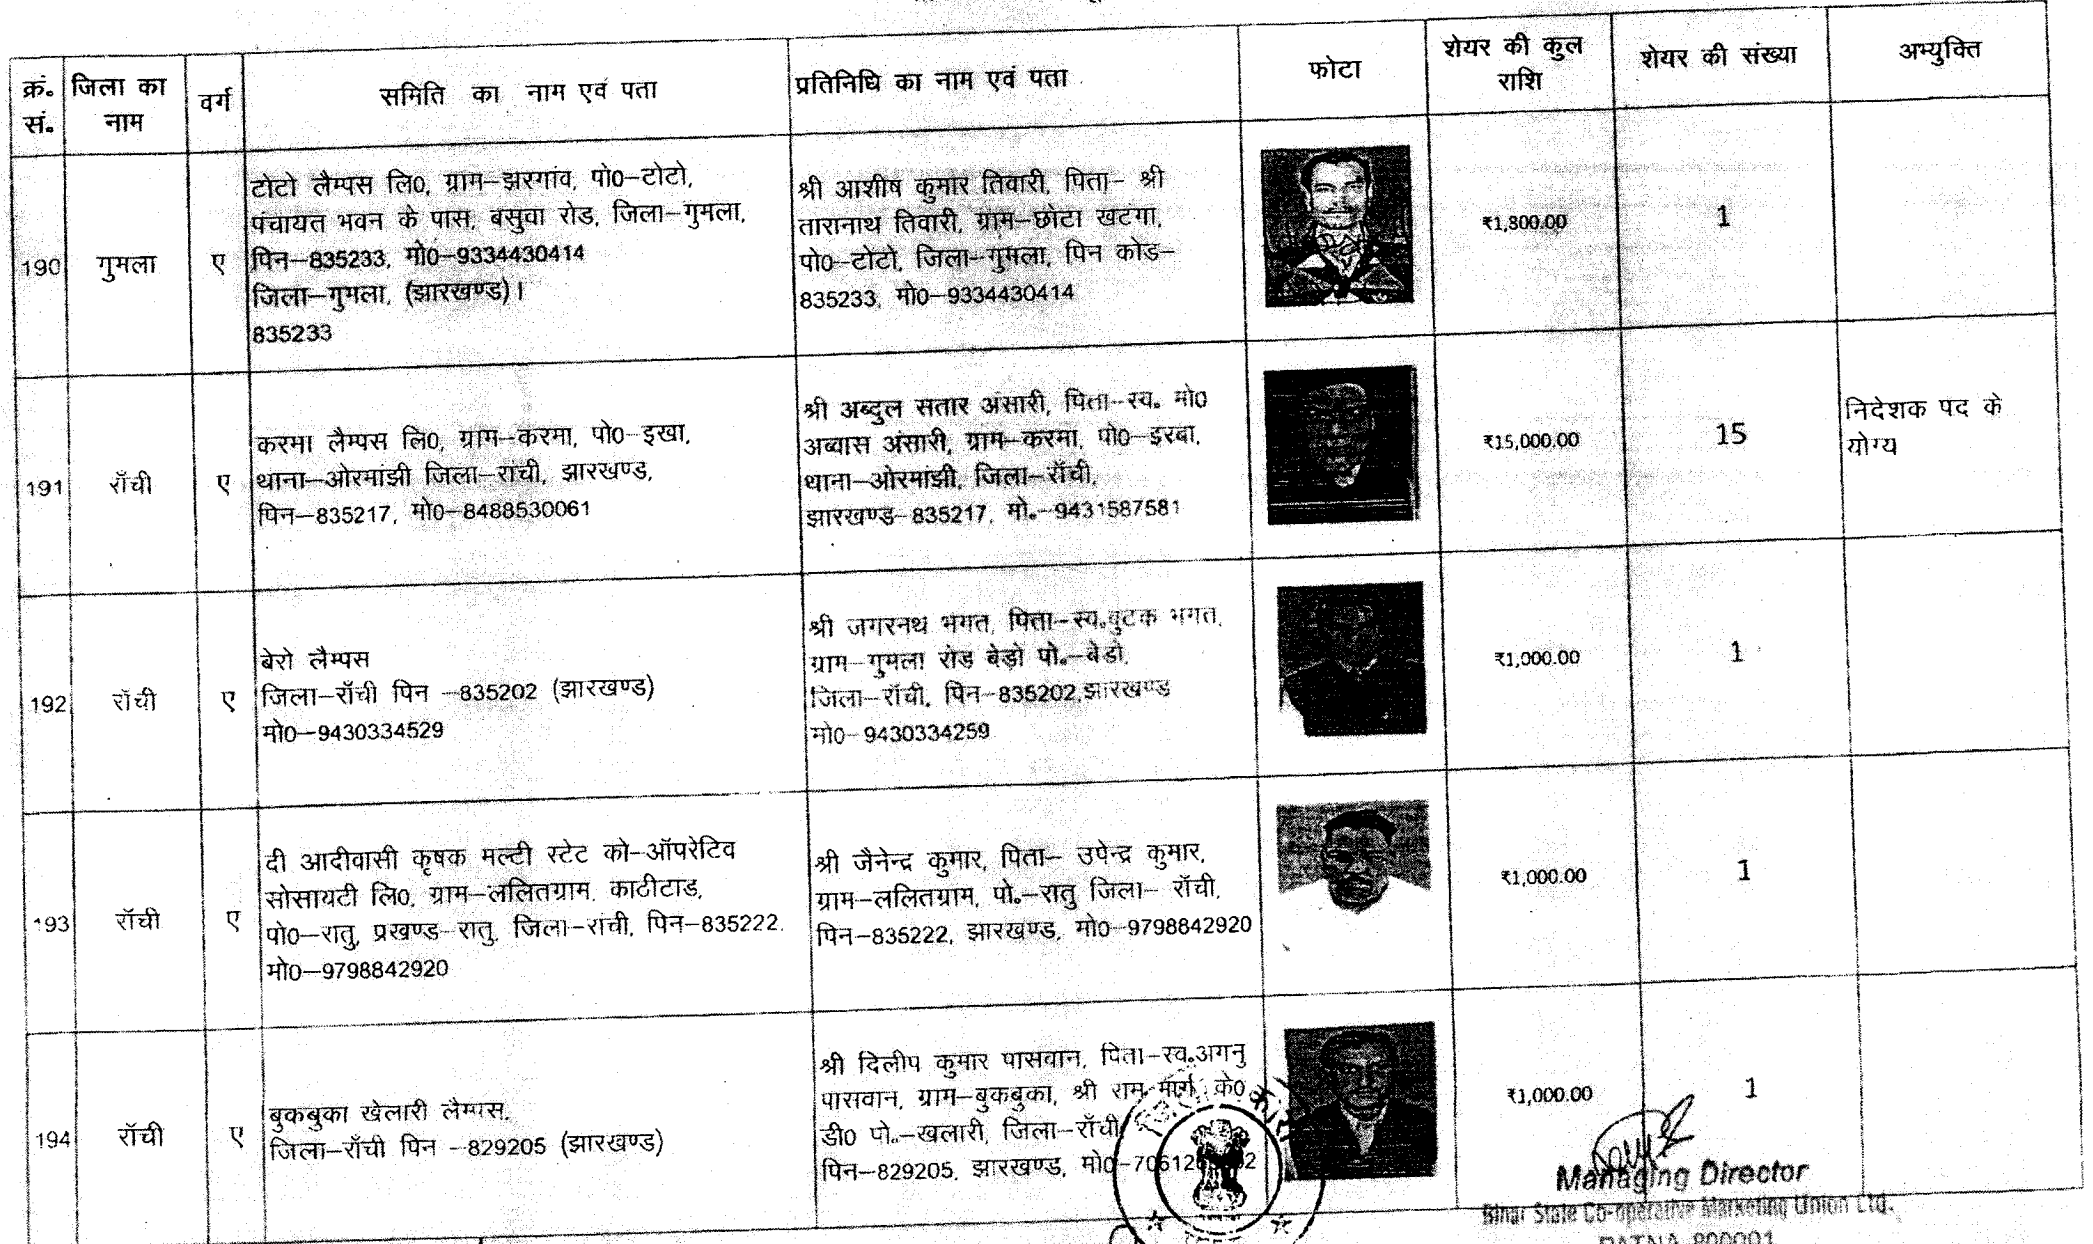 क्रं. सं.
जिला का नाम
वर्ग
समिति का नाम एवं पता
प्रतिनिधि का नाम एवं पता
फोटा
शेयर की कुल राशि
शेयर की संख्या
अभ्युक्ति
190
गुमला
ए
टोटो लैम्पस लि0, ग्राम–झरगांव, पो0–टोटो,
पंचायत भवन के पास, बसुवा रोड, जिला–गुमला,
पिन–835233, मो0–9334430414
जिला–गुमला, (झारखण्ड)।
835233
श्री आशीष कुमार तिवारी, पिता– श्री
तारानाथ तिवारी, ग्राम–छोटा खटगा,
पो0–टोटो, जिला–गुमला, पिन कोड–
835233, मो0–9334430414
₹1,800.00
1
191
राँची
ए
करमा लैम्पस लि0, ग्राम–करमा, पो0–इखा,
थाना–ओरमांझी जिला–रांची, झारखण्ड,
पिन–835217, मो0–8488530061
श्री अब्दुल सतार अंसारी, पिता–स्व. मो0
अब्वास अंसारी, ग्राम–करमा, पो0–इरबा,
थाना–ओरमांझी, जिला–राँची,
झारखण्ड–835217, मो.–9431587581
₹15,000.00
15
निदेशक पद के
योग्य
192
राँची
ए
बेरो लैम्पस
जिला–राँची पिन –835202 (झारखण्ड)
मो0–9430334529
श्री जगरनथ भगत, पिता–स्व.वुटक भगत,
ग्राम–गुमला रोड बेड़ो पो.–बेडो,
जिला–राँची, पिन–835202,झारखण्ड
मो0–9430334259
₹1,000.00
1
193
राँची
ए
दी आदीवासी कृषक मल्टी स्टेट को–ऑपरेटिव
सोसायटी लि0, ग्राम–ललितग्राम, काठीटाड,
पो0–रातु, प्रखण्ड–रातु, जिला–रांची, पिन–835222,
मो0–9798842920
श्री जैनेन्द्र कुमार, पिता– उपेन्द्र कुमार,
ग्राम–ललितग्राम, पो.–रातु जिला– राँची,
पिन–835222, झारखण्ड, मो0–9798842920
₹1,000.00
1
194
राँची
ए
बुकबुका खेलारी लैम्पस,
जिला–राँची पिन –829205 (झारखण्ड)
श्री दिलीप कुमार पासवान, पिता–स्व.अगनु
पासवान, ग्राम–बुकबुका, श्री राम मार्ग, के0
डी0 पो.–खलारी, जिला–राँची
पिन–829205, झारखण्ड, मो0
₹1,000.00
1
Managing Director
Bihar State Co-operative Marketing Union Ltd.
PATNA-800001